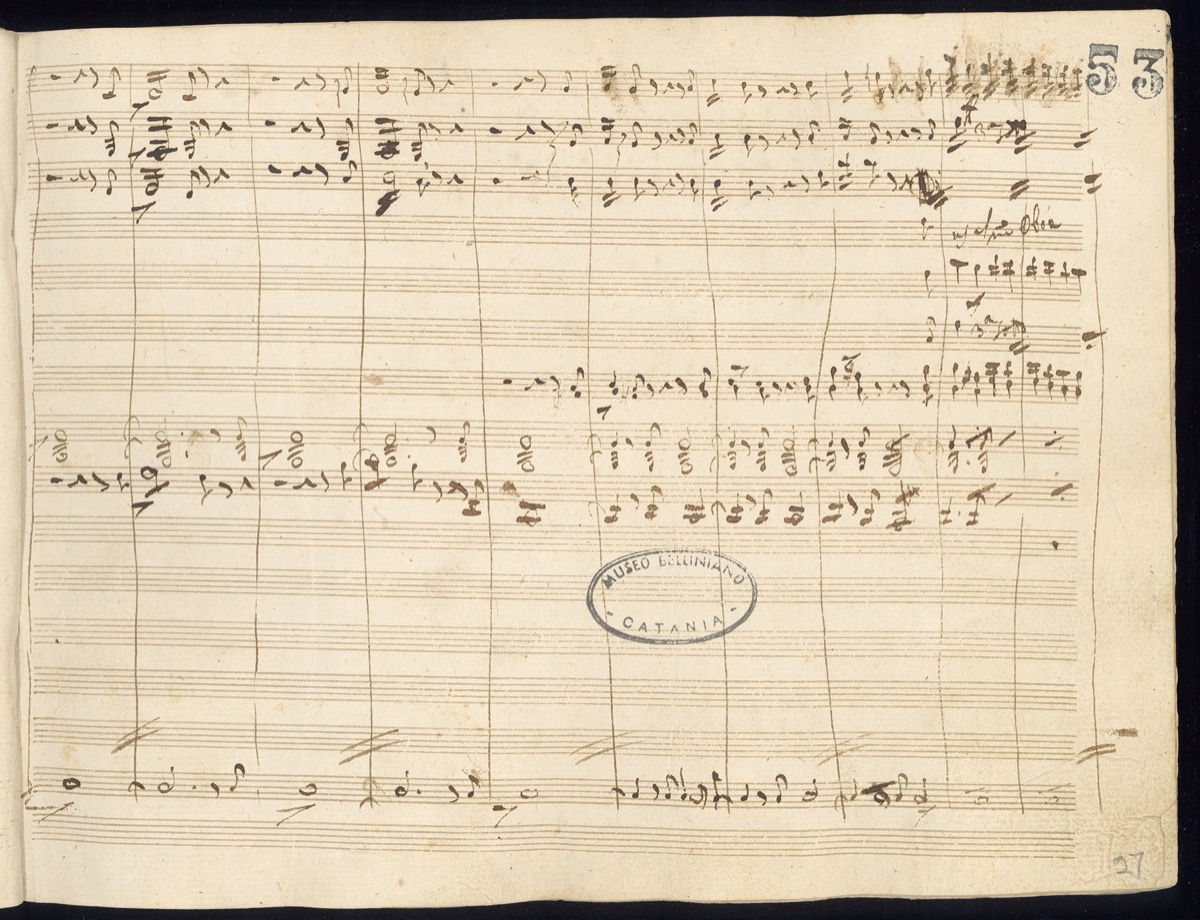 53
Oboe
MUSEO BELLINIANO
- CATANIA -
27